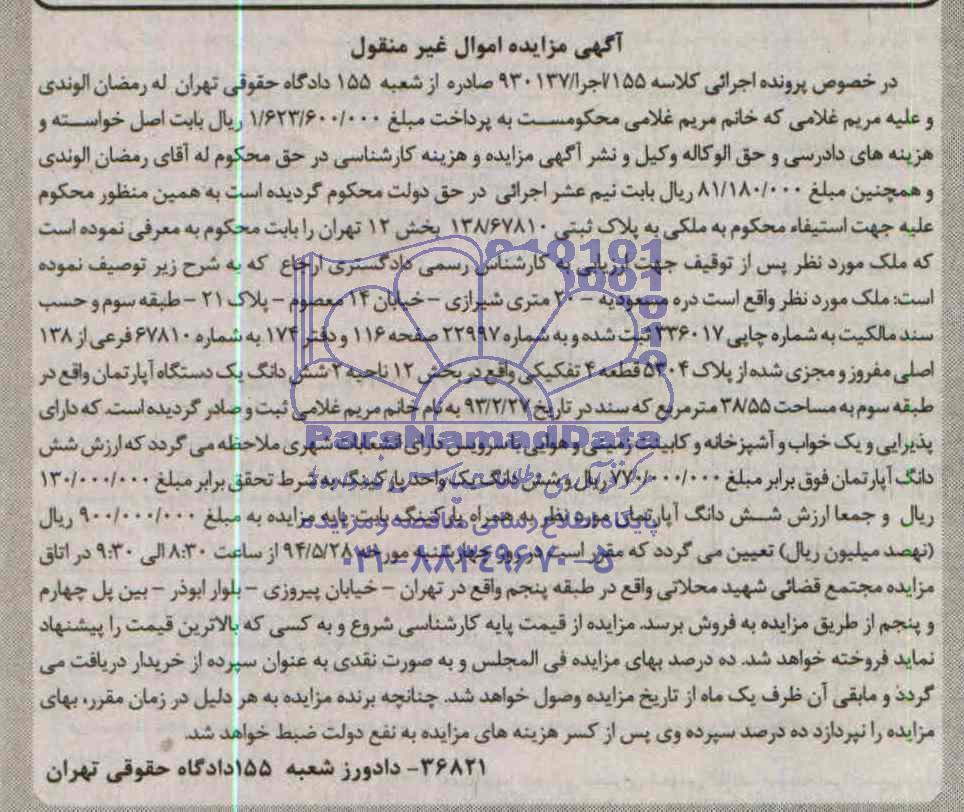 آگهی مزایده اموال غیر منقول
در خصوص پرونده اجرائی کلاسه ۱۵۵/اجرا/۹۳۰۱۳۷ صادره از شعبه ۱۵۵ دادگاه حقوقی تهران له رمضان الوندی
و علیه مریم غلامی که خانم مریم غلامی محکومست به پرداخت مبلغ ۱/۶۲۳/۶۰۰/۰۰۰ ریال بابت اصل خواسته و
هزینه های دادرسی و حق الوکاله وکیل و نشر آگهی مزایده و هزینه کارشناسی در حق محکوم له آقای رمضان الوندی
و همچنین مبلغ ۸۱/۱۸۰/۰۰۰ ریال بابت نیم عشر اجرائی در حق دولت محکوم گردیده است به همین منظور محکوم
علیه جهت استیفاء محکوم به ملکی به پلاک ثبتی ۱۳۸/۶۷۸۱۰ بخش ۱۲ تهران را بابت محکوم به معرفی نموده است
که ملک مورد نظر پس از توقیف جهت ارزیابی به کارشناس رسمی دادگستری ارجاع که به شرح زیر توصیف نموده
است: ملک مورد نظر واقع است دره مسعودیه – ۲۰ متری شیرازی – خیابان ۱۴ معصوم – پلاک ۲۱ – طبقه سوم و حسب
سند مالکیت به شماره چاپی ۳۳۶۰۱۷ ثبت شده و به شماره ۲۲۹۹۷ صفحه ۱۱۶ و دفتر ۱۷۴ به شماره ۶۷۸۱۰ فرعی از ۱۳۸
اصلی مفروز و مجزی شده از پلاک ۵۳۰۴ قطعه ۴ تفکیکی واقع در بخش ۱۲ ناحیه ۲ شش دانگ یک دستگاه آپارتمان واقع در
طبقه سوم به مساحت ۳۸/۵۵ مترمربع که سند در تاریخ ۹۳/۲/۲۷ به نام خانم مریم غلامی ثبت و صادر گردیده است. که دارای
پذیرایی و یک خواب و آشپزخانه و کابینت زمینی و هوایی با سرویس دارای انشعابات شهری ملاحظه می گردد که ارزش شش
دانگ آپارتمان فوق برابر مبلغ ۷۷۰/۰۰۰/۰۰۰ ریال و شش دانگ یک واحد پارکینگ به شرط تحقق برابر مبلغ ۱۳۰/۰۰۰/۰۰۰
ریال و جمعا ارزش شش دانگ آپارتمان مورد نظر به همراه پارکینگ بابت پایه مزایده به مبلغ ۹۰۰/۰۰۰/۰۰۰ ریال
(نهصد میلیون ریال) تعیین می گردد که مقرر است در روز چهارشنبه مورخه ۹۴/۵/۲۸ از ساعت ۸:۳۰ الی ۹:۳۰ در اتاق
مزایده مجتمع قضائی شهید محلاتی واقع در طبقه پنجم واقع در تهران – خیابان پیروزی – بلوار ابوذر – بین پل چهارم
و پنجم از طریق مزایده به فروش برسد. مزایده از قیمت پایه کارشناسی شروع و به کسی که بالاترین قیمت را پیشنهاد
نماید فروخته خواهد شد. ده درصد بهای مزایده فی المجلس و به صورت نقدی به عنوان سپرده از خریدار دریافت می
گردد و مابقی آن ظرف یک ماه از تاریخ مزایده وصول خواهد شد. چنانچه برنده مزایده به هر دلیل در زمان مقرر، بهای
مزایده را نپردازد ده درصد سپرده وی پس از کسر هزینه های مزایده به نفع دولت ضبط خواهد شد.
۳۶۸۲۱– دادورز شعبه ۱۵۵ دادگاه حقوقی تهران
ParsNamadData
پایگاه اطلاع رسانی مناقصه و مزایده
۰۲۱-۸۸۳۴۹۶۷۰-۵